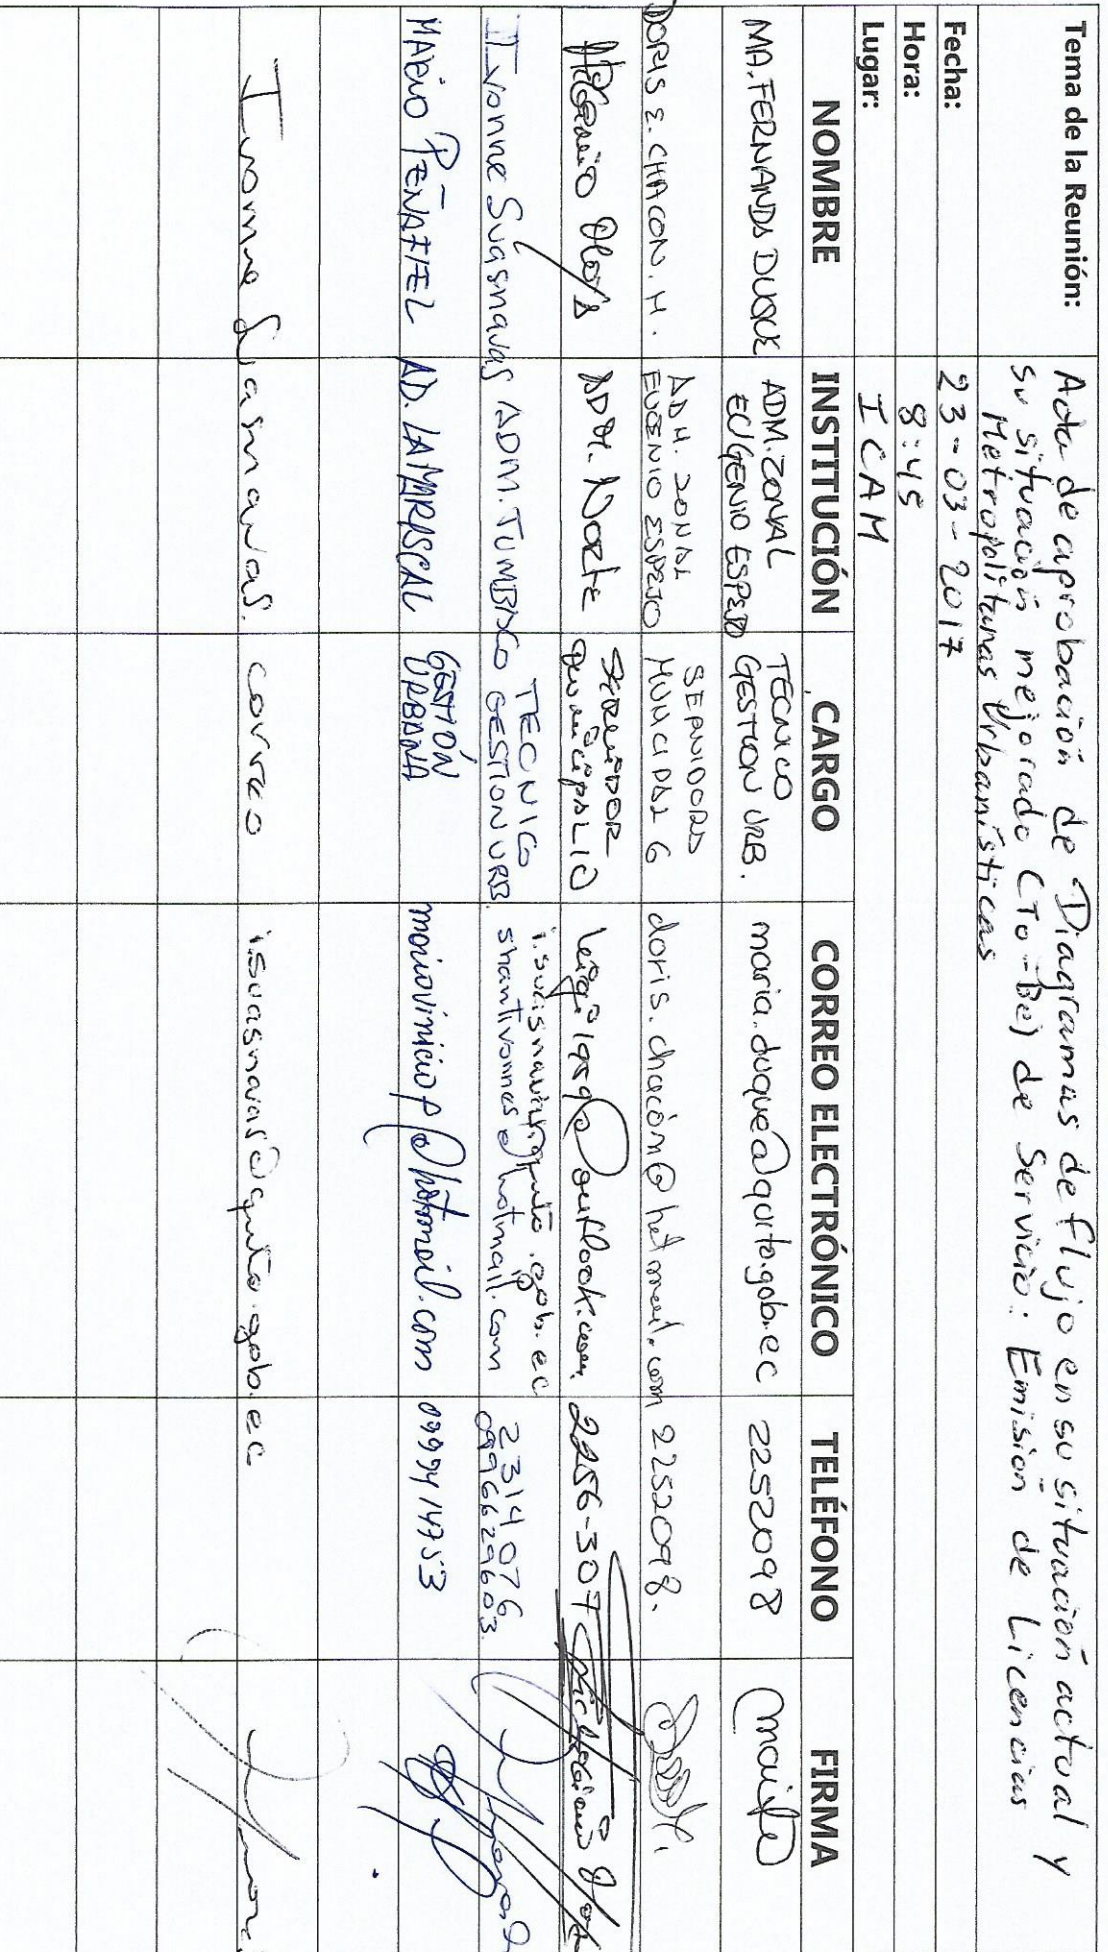 Tema de la Reunión: Acta de aprobación de Diagramas de flujo en su situación actual y
su situación mejorado (To-Be) de Servicio: Emisión de Licencias
Metropolitanas Urbanísticas
Fecha: 23-03-2017
Hora: 8:45
Lugar: ICAM
NOMBRE INSTITUCIÓN CARGO CORREO ELECTRÓNICO TELÉFONO FIRMA
MA. FERNANDA DUQUE ADM. ZONAL EUGENIO ESPEJO TECNICO GESTION URB. maria.duque@quito.gob.ec 2252098
DORIS E. CHACON. H. ADM. ZONAL EUGENIO ESPEJO SERVIDORA MUNICIPAL 6 doris.chacón@hotmail.com 2252098.
ADM. Norte SERVIDOR municipal 10 2256-307
Ivonne Suásnavas ADM. TUMBACO TECNICO GESTION URB. shantivonnes@hotmail.com 2314076 0996629603
MARIO PEÑAFIEL AD. LA MARISCAL GESTIÓN URBANA mariovinicio_p@hotmail.com 0999414753
Ivonne Suasnavas. correo isuasnavas@quito.gob.ec